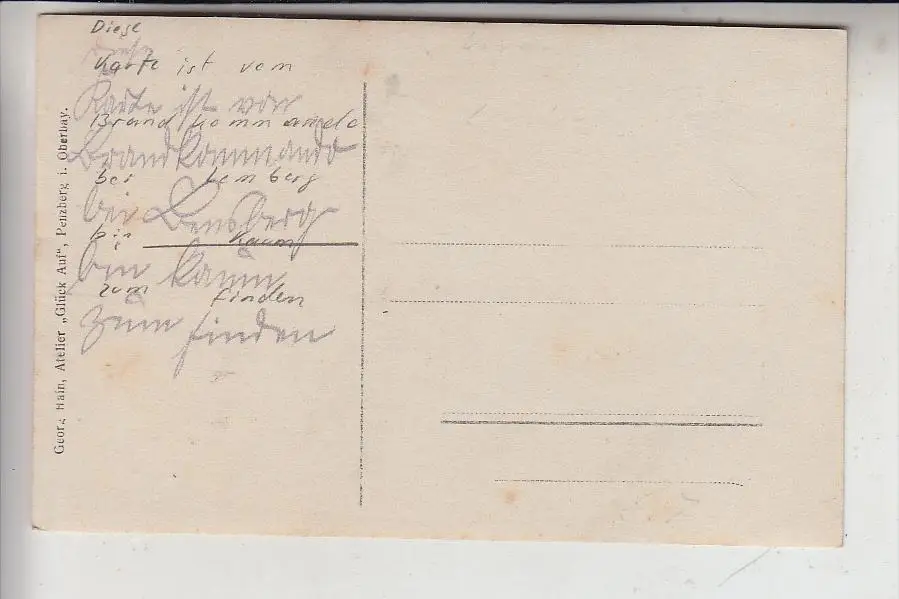 Diese
Diese
Karte ist von
Karte ist von
Brand kommando
Brandkommando
bei Lemberg
bei Lensberg
bin kaum
bin kaum
zum finden
zum finden
Georg Hain, Atelier „Glück Auf", Penzberg i. Oberbay.